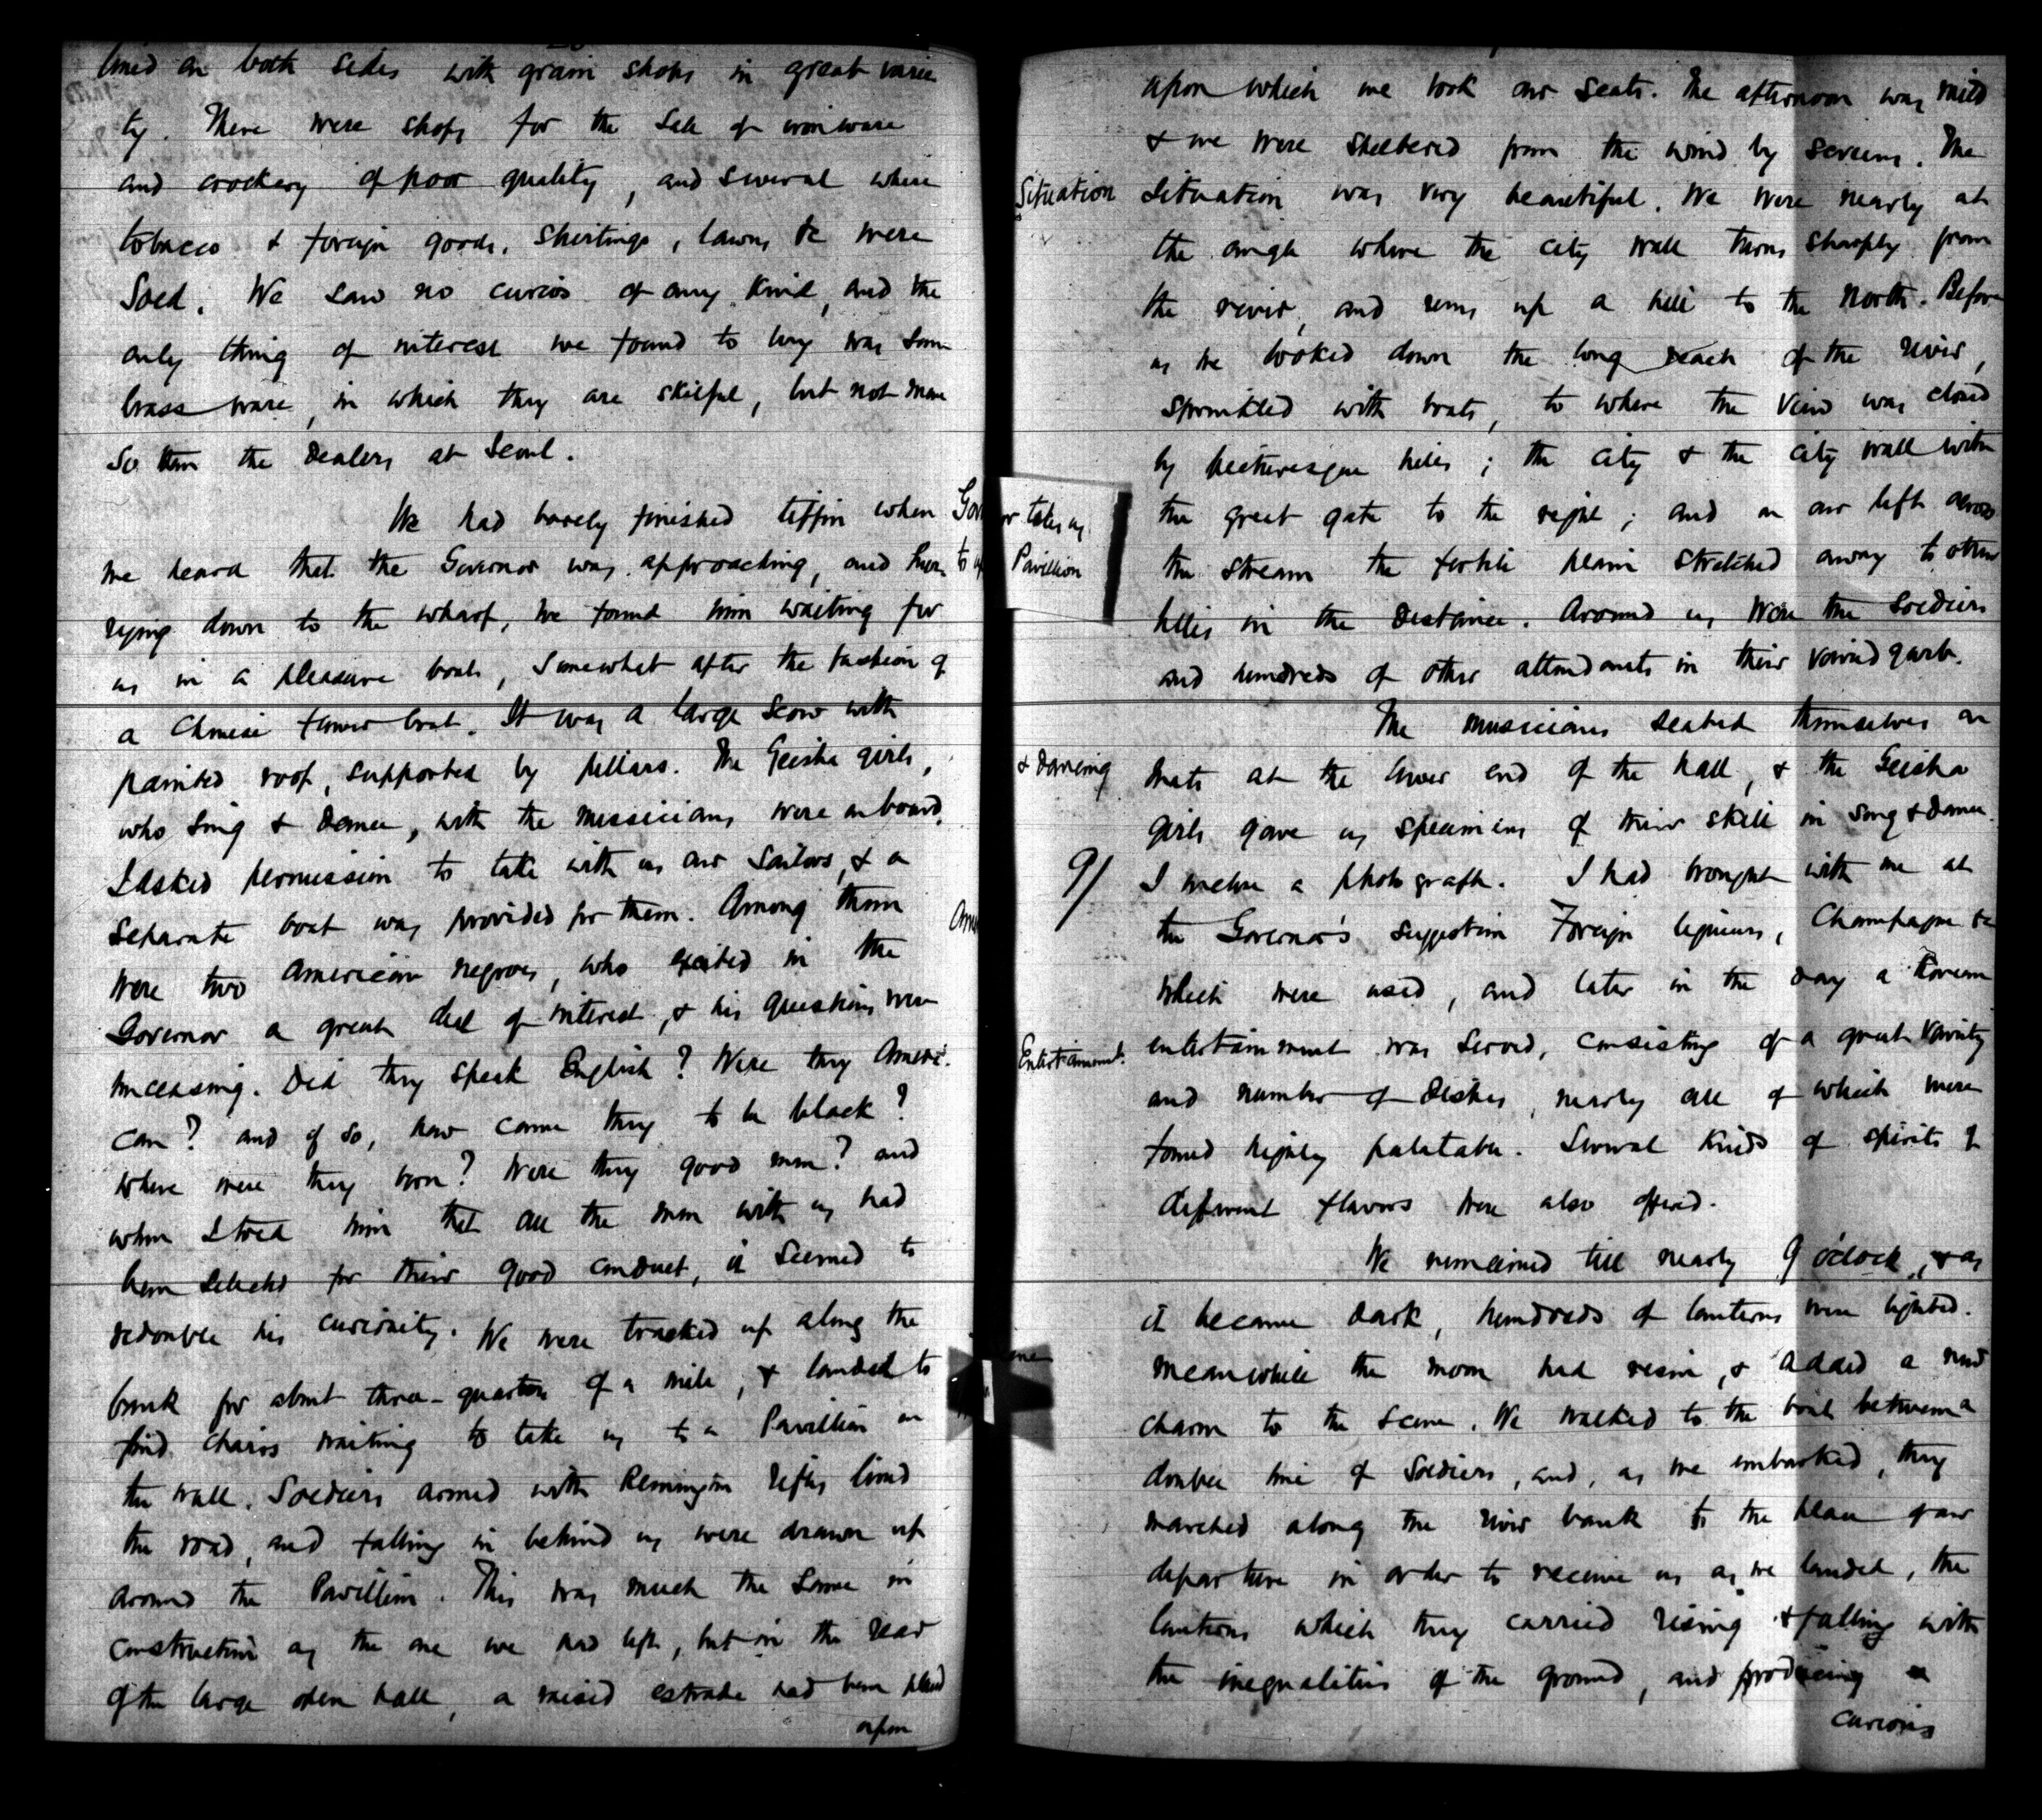 lined on both sides with grain shops in great varie
ty. There were shops for the sale of ironware
and crockery of poor quality, and several where
tobacco & foreign goods, shirtings, lawns &c were
sold. We saw no curios of any kind, and the
only thing of interest we found to buy was some
brass ware, in which they are skilful, but not more
so than the dealers at Seoul.
We had barely finished tiffin when
we heard that the Governor was approaching, and hur-
rying down to the wharf, we found him waiting for
us in a pleasure boat, somewhat after the fashion of
a Chinese flower boat. It was a large scow with
painted roof, supported by pillars. The Geisha girls,
who sing & dance, with the musicians were on board.
I asked permission to take with us our sailors, & a
separate boat was provided for them. Among them
were two American negroes, who excited in the
Governor a great deal of interest, & his questions were
unceasing. Did they speak English? Were they Ameri-
can? and if so, how came they to be black?
Where were they born? Were they good men? and
when I told him that all the men with us had
been selected for their good conduct, it seemed to
redouble his curiosity. We were tracked up along the
bank for about three-quarters of a mile, & landed to
find chairs waiting to take us to a Pavillion on
the wall. Soldiers armed with Remington rifles lined
the road, and falling in behind us were drawn up
around the Pavillion. This was much the same in
construction as the one we had left, but in the rear
of the large open hall, a raised estrade had been placed
upon
Gov or takes us
to Pavillion
upon which we took our seats. The afternoon was mild
& we were sheltered from the wind by screens. The
Situation
situation was very beautiful. We were nearly at
the angle where the city wall turns sharply from
the river, and runs up a hill to the north. Before
us we looked down the long reach of the river,
sprinkled with boats, to where the view was closed
by picturesque hills; the city & the city wall with
the great gate to the right; and on our left across
the stream the fertile plain stretched away to other
hills in the distance. Around us were the soldiers
and hundreds of other attendants in their varied garb.
The musicians seated themselves on
& Dancing
mats at the lower end of the hall, & the Geisha
girls gave us specimens of their skill in song & dance.
9/
I inclose a photograph. I had brought with me at
the Governor's suggestion Foreign liqueurs, Champagne &c
which were used, and later in the day a Korean
Entertainment.
entertainment was served, consisting of a great variety
and number of dishes, nearly all of which were
found highly palatable. Several kinds of spirits of
different flavors were also offered.
We remained till nearly 9 o'clock, & as
it became dark, hundreds of lanterns were lighted.
Meanwhile the moon had risen, & added a new
charm to the scene. We walked to the boat between a
double line of soldiers, and, as we embarked, they
marched along the river bank to the place of our
departure in order to receive us as we landed, the
lanterns which they carried rising & falling with
the inequalities of the ground, and producing a
curious